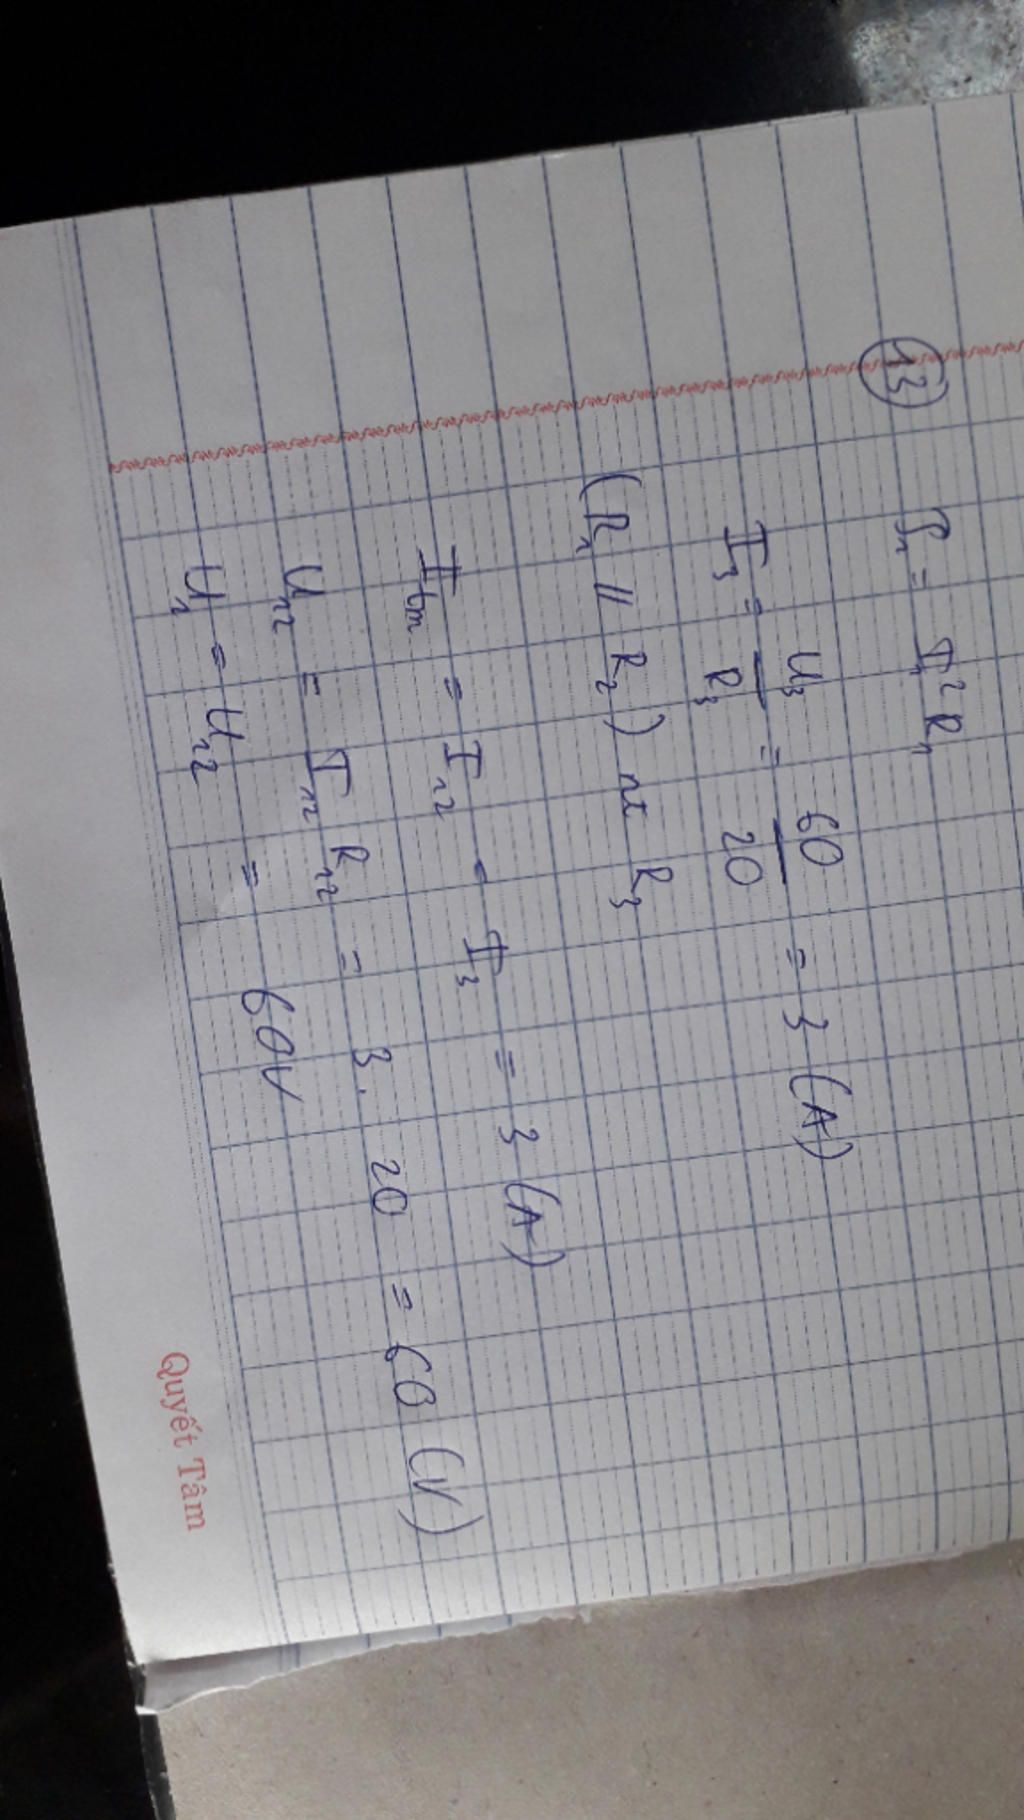 13
P₁ = I₁² R₁
I₃ = U₃/R₃ = 60/20 = 3 (A)
(R₁ // R₂) nt R₃
I₆ₘ = I₁₂ = I₃ = 3 (A)
U₁₂ = I₁₂ R₁₂ = 3. 20 = 60 (V)
U₁ = U₁₂ = 60V
Quyết Tâm